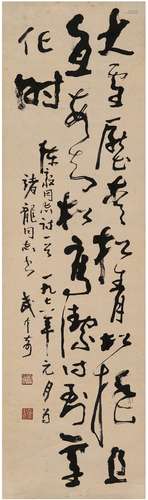 大雪压青松青松挺且
直要知松高洁待到雪
化时
陈毅同志诗一首 一九七八年元月为
诸龙同志书 武中奇